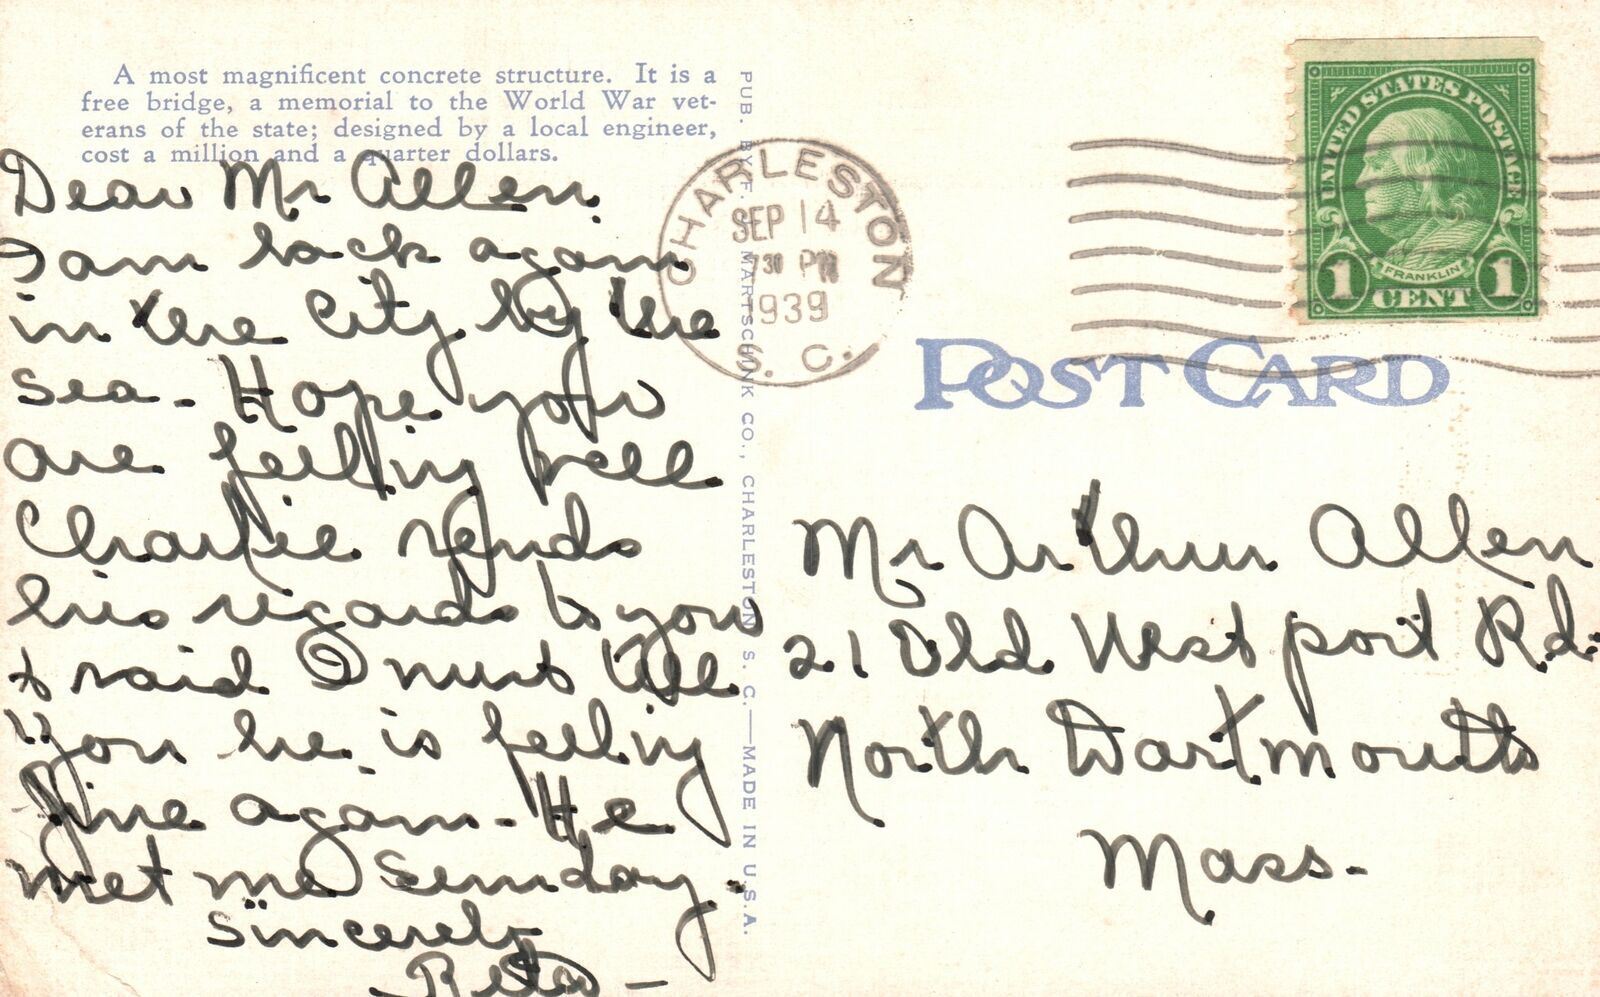 A most magnificent concrete structure. It is a
free bridge, a memorial to the World War vet-
erans of the state; designed by a local engineer,
cost a million and a quarter dollars.
Dear Mr Allen.
I am back again
in the City by the
sea - Hope you
are feeling well
Charlie sends
his regards to you
& said I must tell
you he is feeling
fine again - He
met me Sunday.
Sincerely
Reta -
PUB. BY F. J. MARTSCHINK CO., CHARLESTON, S. C. — MADE IN U.S.A.
CHARLESTON
SEP 14
730 PM
1939
S. C.
UNITED STATES POSTAGE
FRANKLIN
1 CENT 1
POST CARD
Mr Arthur Allen
21 Old Westport Rd.
North Dartmouth
Mass.